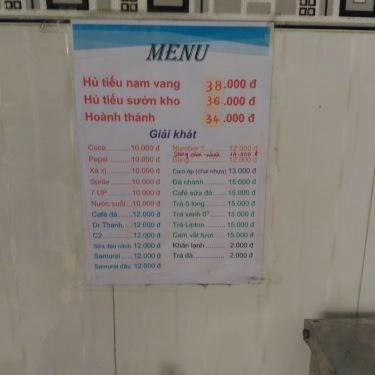 MENU
Hủ tiếu nam vang 38.000 đ
Hủ tiếu sườn kho 36.000 đ
Hoành thánh 34.000 đ
Giải khát
Coca ......... 10.000 đ
Pepsi ......... 10.000 đ
Xá xị ......... 10.000 đ
Sprite ......... 10.000 đ
7 UP ......... 10.000 đ
Nước suối .... 10.000 đ
Café đá ...... 12.000 đ
Dr Thanh ..... 12.000 đ
C2 ......... 12.000 đ
Sữa đậu nành 12.000 đ
Samurai ..... 12.000 đ
Samurai dâu 12.000 đ
Number 1 ......... 12.000 đ
Sting chai nhựa
Sting ......... 12.000 đ
Cam ép (chai nhựa) 13.000 đ
Đá chanh ......... 15.000 đ
Café sữa đá ...... 15.000 đ
Trà ô long ......... 15.000 đ
Trà xanh 0º ...... 15.000 đ
Trà Lipton ......... 15.000 đ
Cam vắt tươi ..... 15.000 đ
Khăn lạnh ......... 2.000 đ
Trà đá ......... 2.000 đ